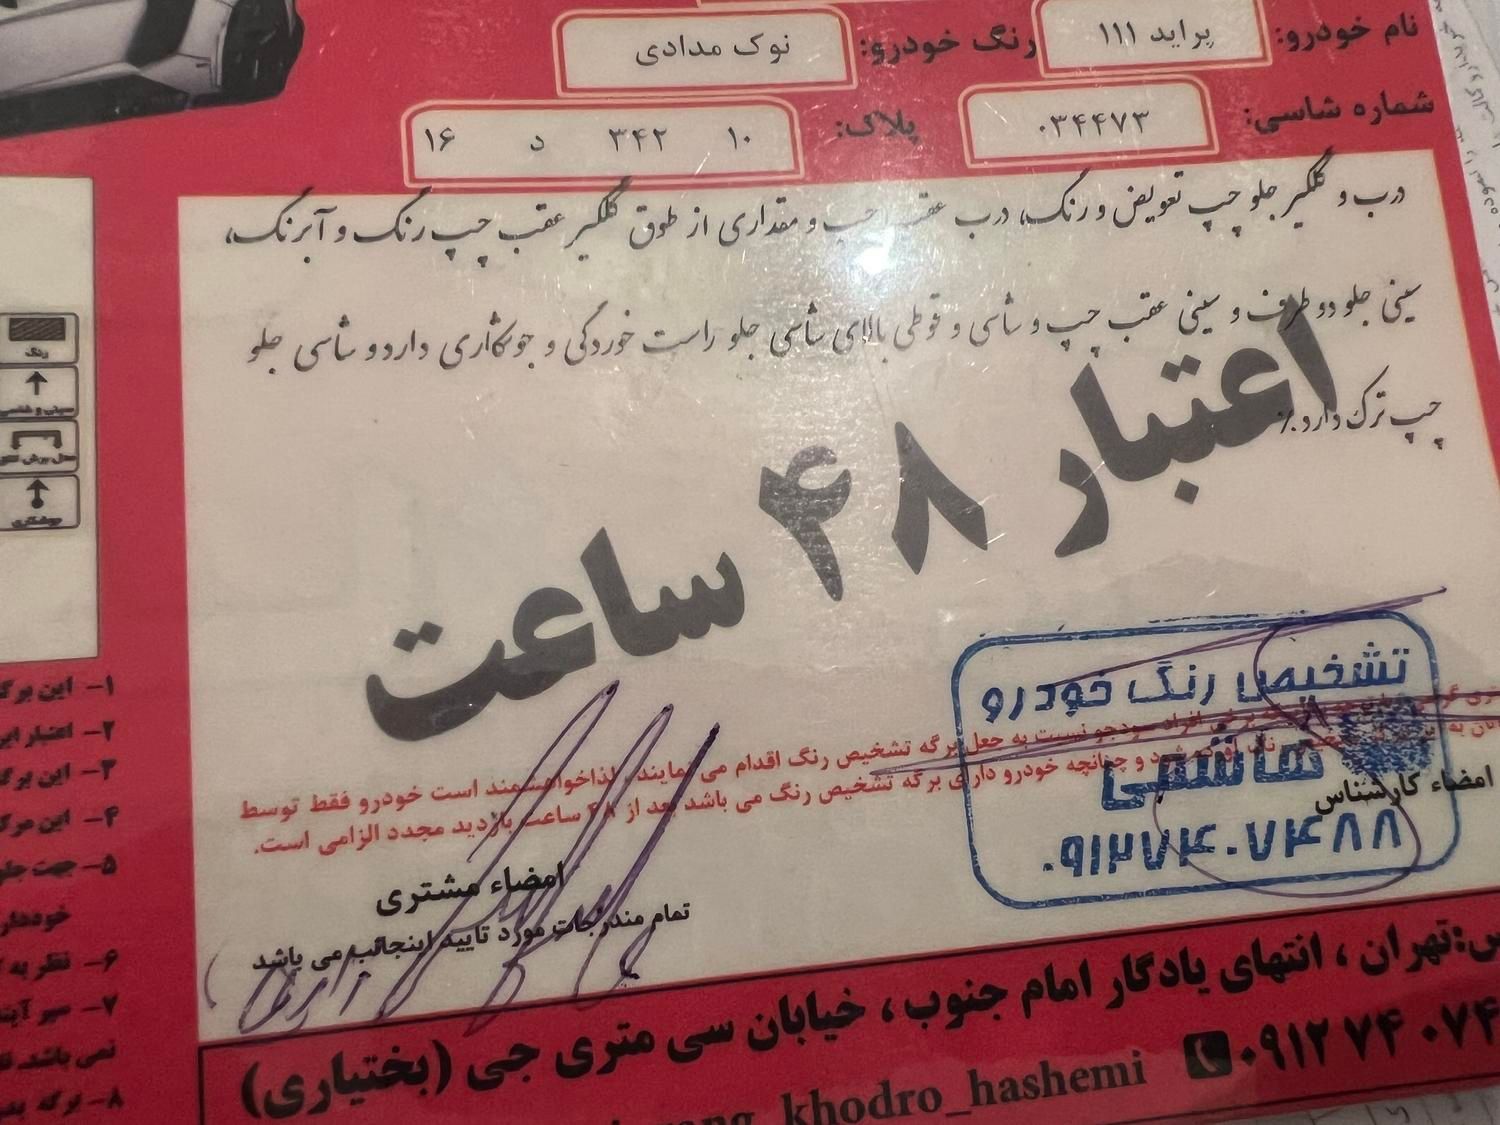 نام خودرو: پراید ۱۱۱ رنگ خودرو: نوک مدادی
شماره شاسی: ۰۳۴۴۷۳ پلاک: ۱۰ ۳۴۲ د ۱۶
درب و گلگیر جلو چپ تعویض و رنگ، درب عقب چپ و مقداری از طوق گلگیر عقب چپ رنگ و آبرنگ،
سینی جلو دو طرف و سینی عقب چپ و شاسی و قوطی بالای شاسی جلو راست خوردگی و جوشکاری دارد و شاسی جلو
چپ ترک دارد٪
اعتبار ۴۸ ساعت
رنگ
سینی و شاسی
جوشکاری
تشخیص رنگ خودرو
هاشمی
۰۹۱۲۷۴۰۷۴۷۷
برخی افراد سودجو نسبت به جعل برگه تشخیص رنگ اقدام می نمایند، لذا خواهشمند است خودرو فقط توسط
شود و چنانچه خودرو دارای برگه تشخیص رنگ می باشد بعد از ۴۸ ساعت بازدید مجدد الزامی است.
امضاء کارشناس
امضاء مشتری
تمام مندرجات مورد تایید اینجانب می باشد
۱- این برگ
۲- اعتبار این
۳- این برگ
۴- این مرک
۵- جهت جلو
خوددار
۶- نظر به
۷- سپر آینه
نمی باشد.
۸- برگه بد
س:تهران ، انتهای یادگار امام جنوب ، خیابان سی متری جی (بختیاری)
۰۹۱۲ ۷۴ ۰۷۴
rang_khodro_hashemi